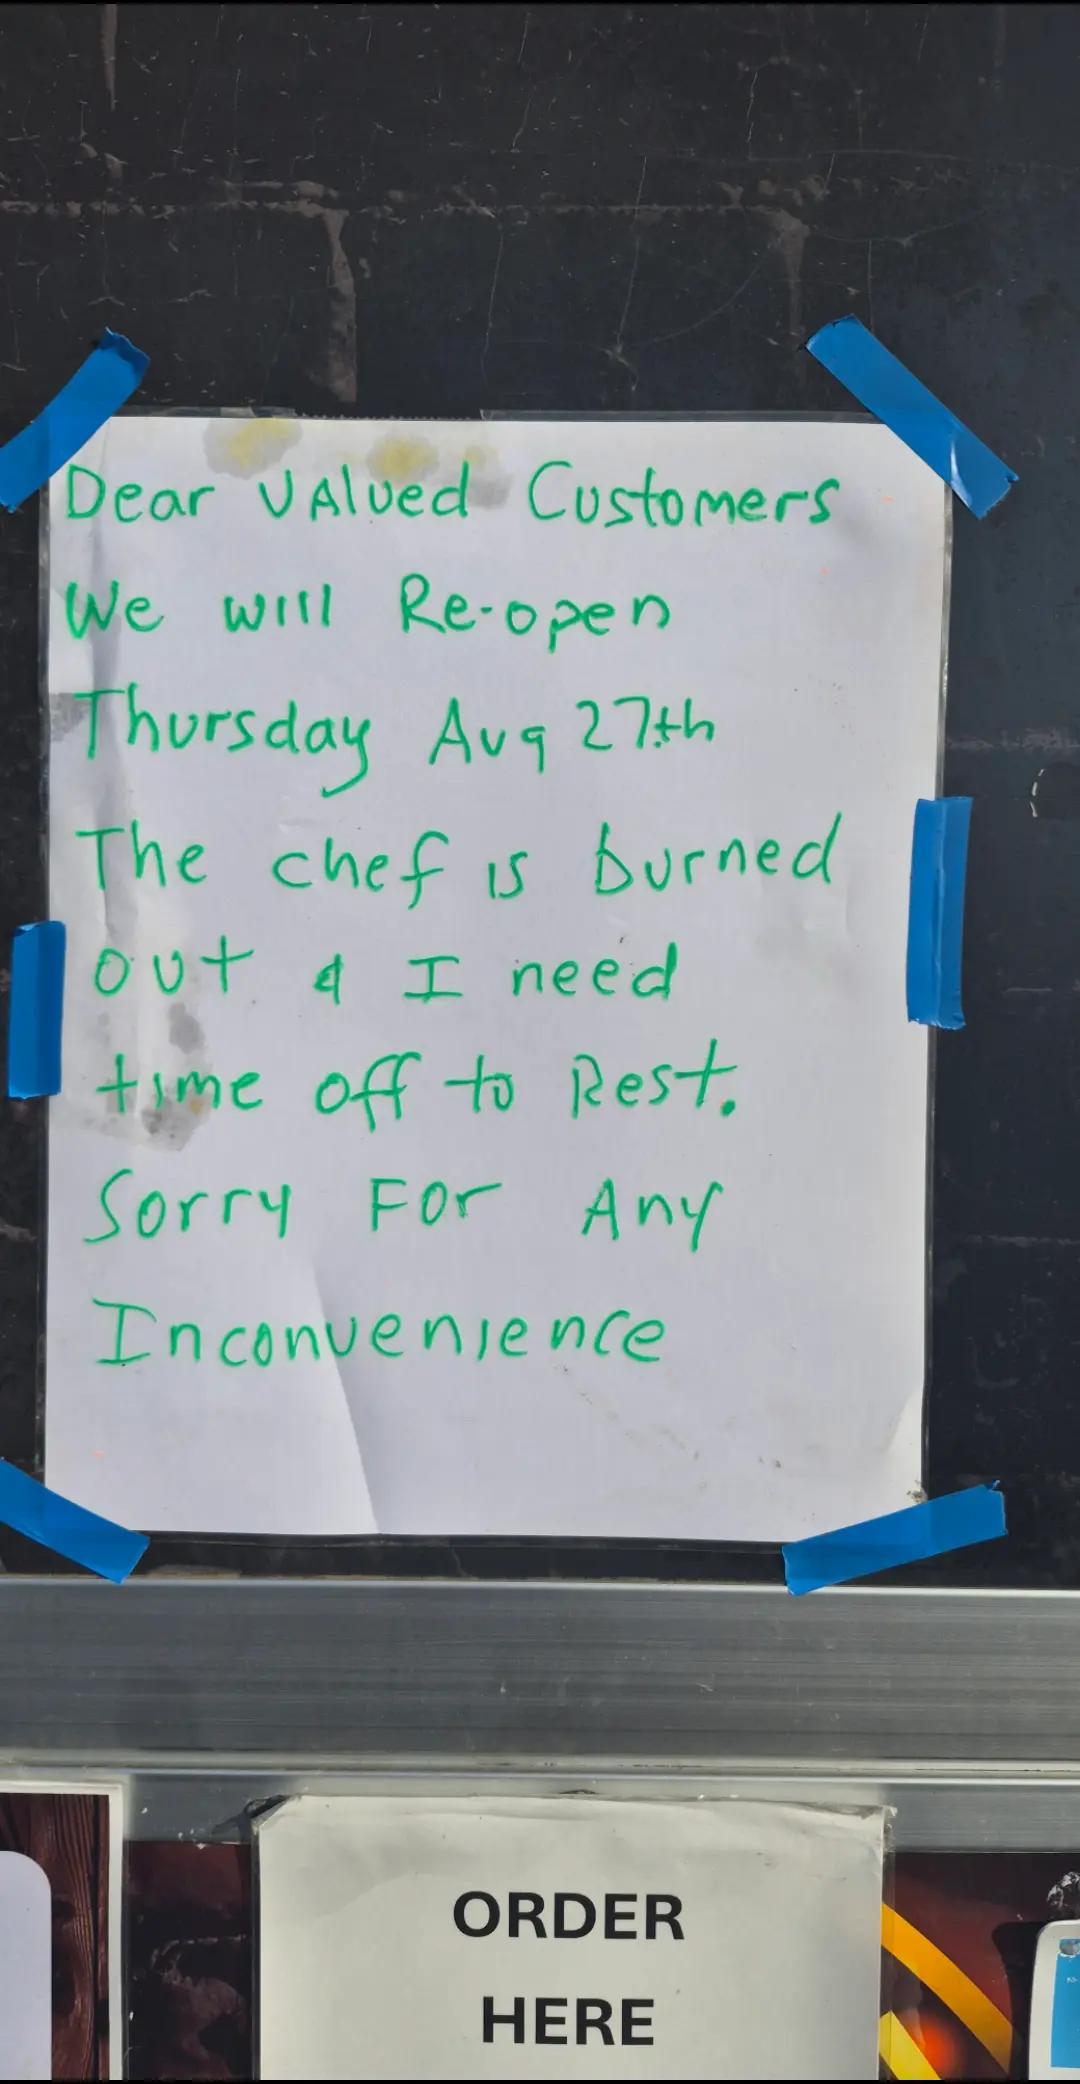 Dear VAlued Customers
We will Re-open
Thursday Aug 27th
The chef is burned
out & I need
time off to Rest.
Sorry For Any
Inconvenience
ORDER
HERE